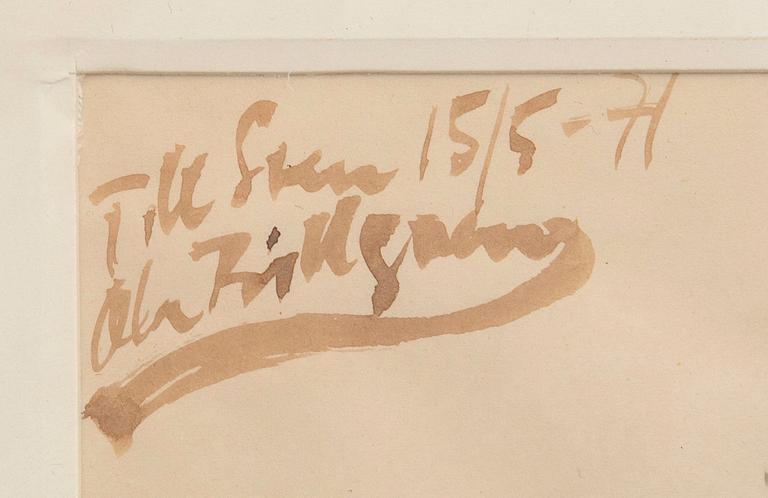 Till Sven 15/5-71
Ola Billgren